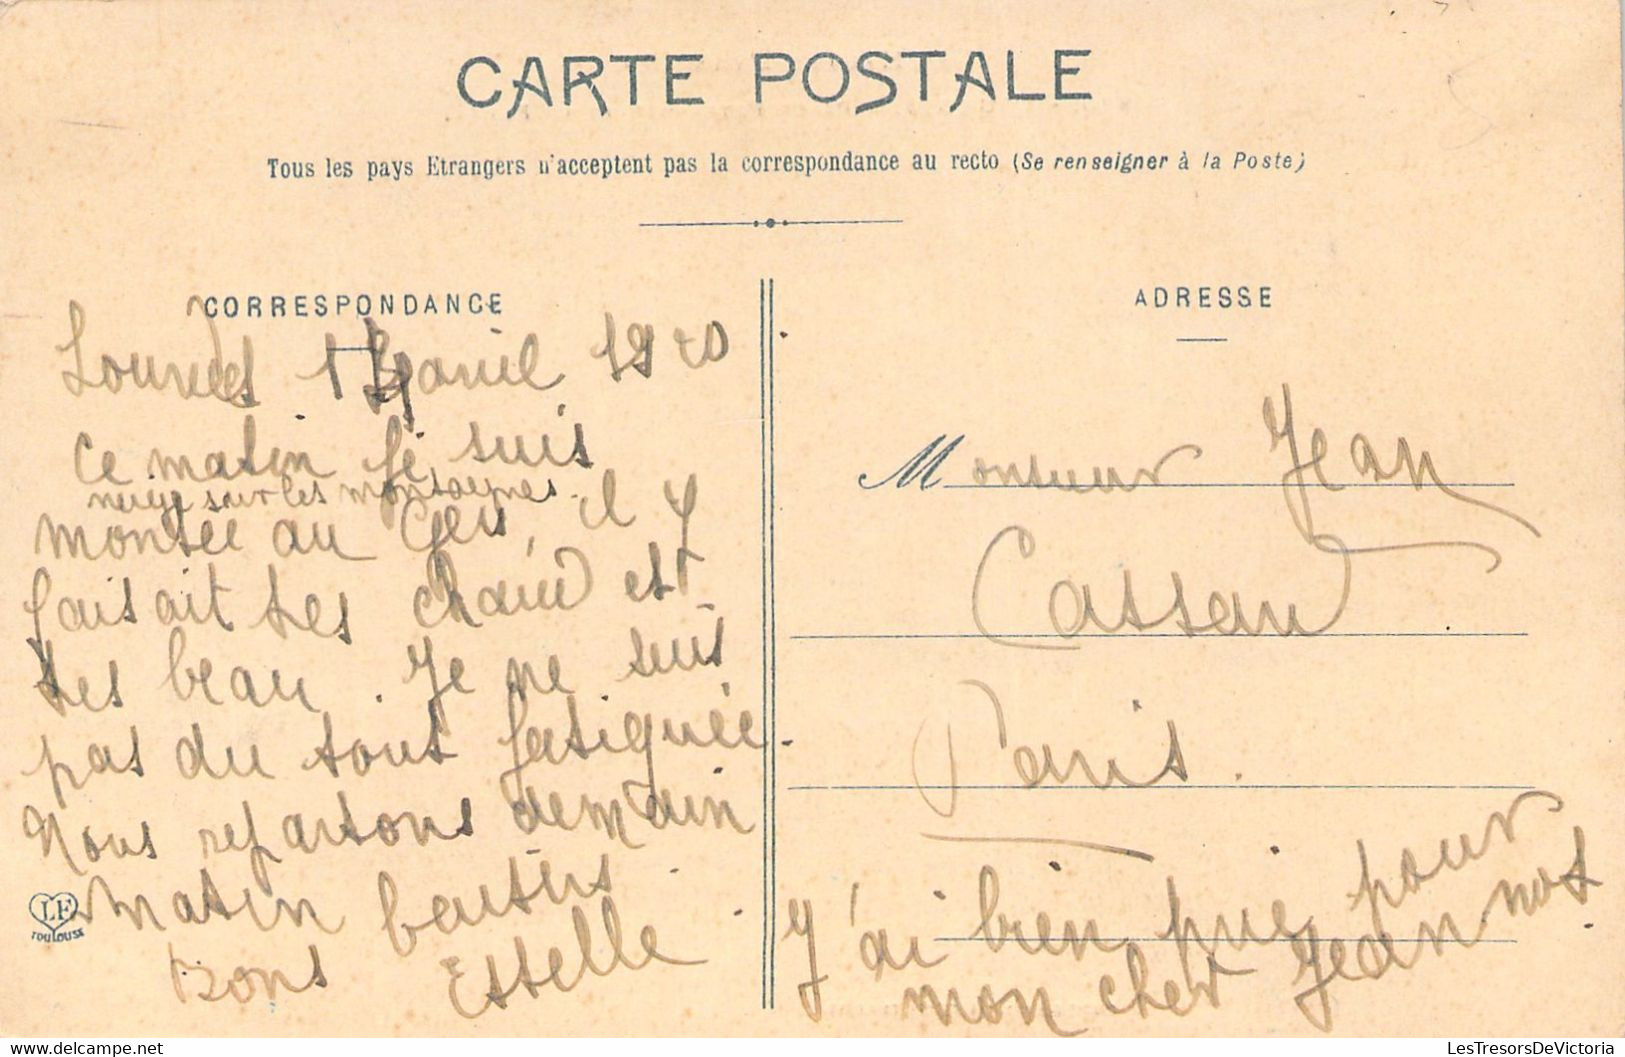 CARTE POSTALE
Tous les pays Etrangers n'acceptent pas la correspondance au recto (Se renseigner à la Poste)
CORRESPONDANCE
Lourdes 1 avril 1920
Ce matin je suis
neige sur les montagnes
montée au Gers, il y
faisait tes chaud est
tes beau. Je ne suis
pas du tout fatiguée.
Nous repartons demain
matin baisers
Bons Estelle
LF
TOULOUSE
ADRESSE
Monsieur Jean
Cassan
Paris.
J'ai bien prié pour
mon cher Jean nos
LesTresorsDeVictoria